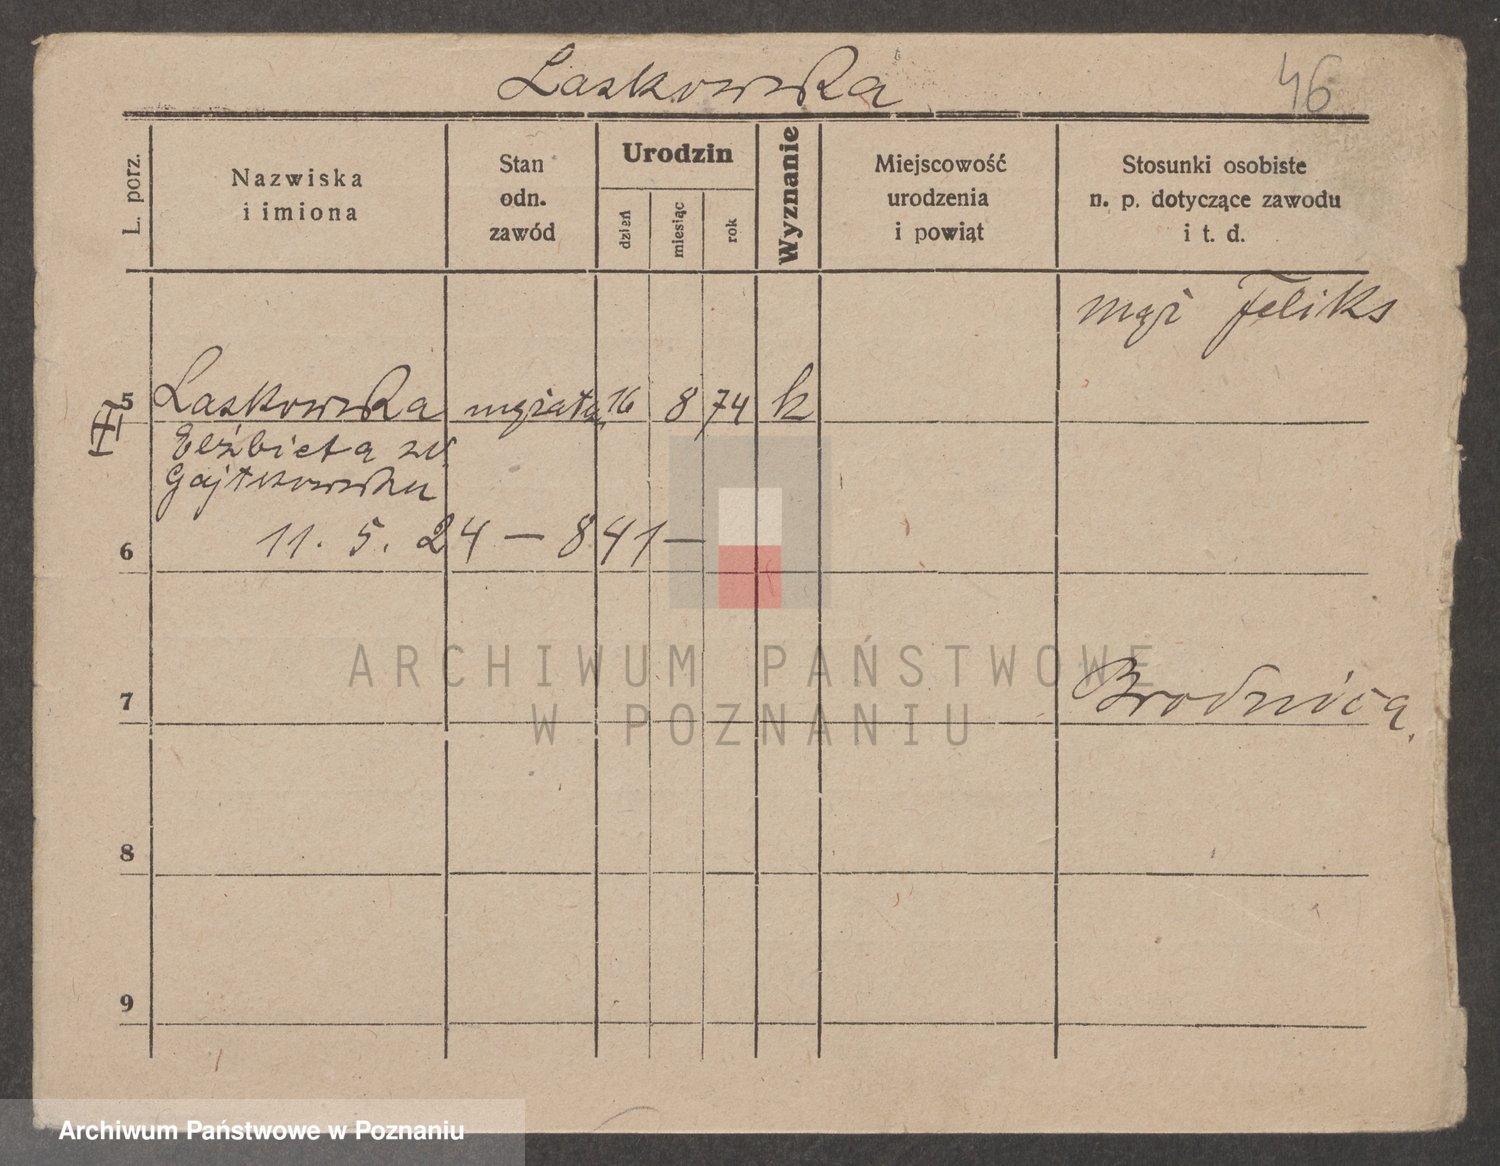 Laskowska
46
L. porz.
Nazwiska
i imiona
Stan
odn.
zawód
Urodzin
dzień
miesiąc
rok
Wyznanie
Miejscowość
urodzenia
i powiąt
Stosunki osobiste
n. p. dotyczące zawodu
i t. d.
mąż Feliks
5 Laskowska mężata 16 8 74 k
Elżbieta
11. 5. 24 — 841 —
6
ARCHIWUM PAŃSTWOWE
W POZNANIU
7 Brodnica
8
9
Archiwum Państwowe w Poznaniu